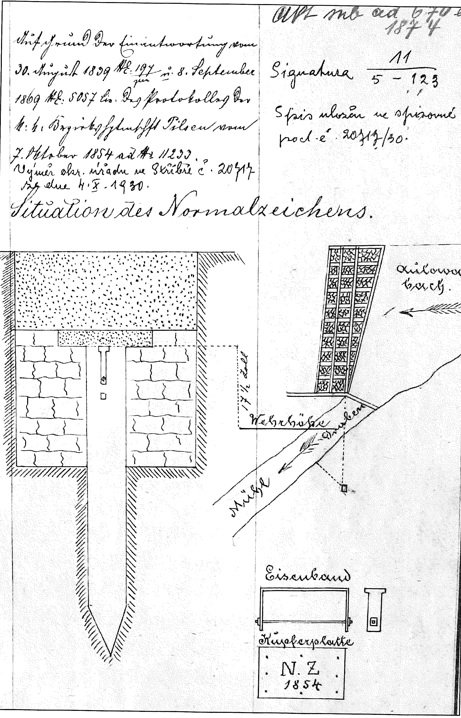 Akt sub ad 670 ex
1874
Auf Grund der Einantwortung vom
30. August 1839 Nr. 197 u. 8. September
1869 Nr. 5057 des Protokolles der
k. k. Bezirkshptmschft Pilsen vom
7. Oktober 1854 ad Nr 11233.
Výměr okr. úřadu ve Stříbře č. 20717
ze dne 4. X. 1930.
Signatura 11
5 – 123
Spis uložen ve spisovně
pod č. 20717/30.
Situation des Normalzeichens.
bach.
17 ½ Zoll
Wehrhöhe
Graben
Mühl
Eisenband
Kupferplatte
N. Z
1854